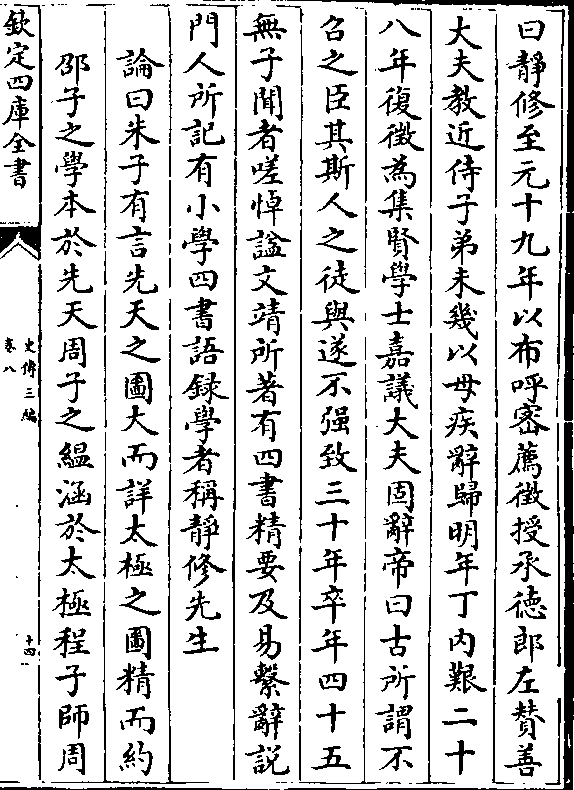 曰靜修至元十九年以布呼密薦徴授承德郎左賛善
大夫教近侍子弟未幾以母疾辭歸明年丁内艱二十
八年復徴為集賢學士嘉議大夫固辭帝曰古所謂不
召之臣其斯人之徒與遂不强致三十年卒年四十五
無子聞者嗟悼諡文靖所著有四書精要及易繫辭説
門人所記有小學四書語録學者稱靜修先生
論曰朱子有言先天之圖大而詳太極之圖精而約
邵子之學本於先天周子之緼涵於太極程子師周
欽定四庫全書
史傳三編
卷八
十四